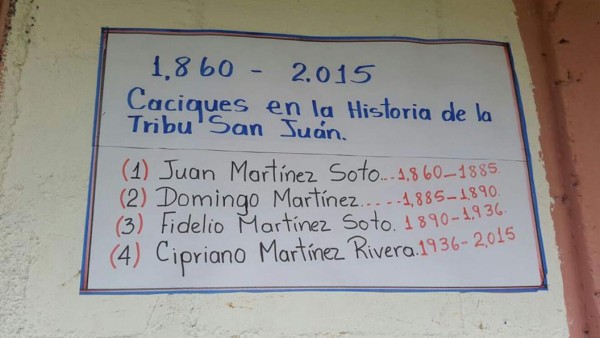 1,860 - 2.015
Caciques en la Historia de la
Tribu San Juán.
(1) Juan Martínez Soto...1,860-1885.
(2) Domingo Martínez.....1,885-1,890.
(3) Fidelio Martínez Soto. 1890-1,936.
(4) Cipriano Martínez Rivera.1936-2,015